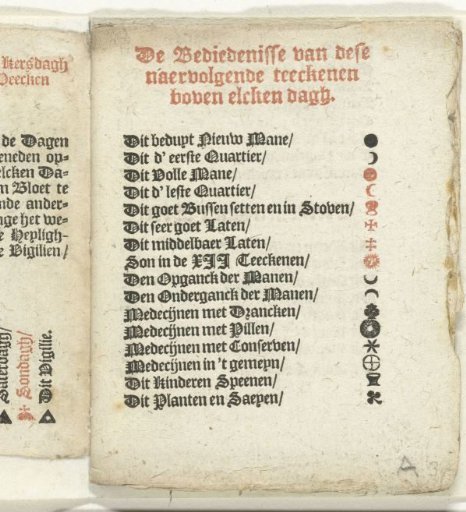 Kersdagh
Teecken
de Dagen
eneden op-
elcken Da-
n Bloet te
nde ander-
age het we-
e Heyligh-
e Vigilien/
Saterdagh/
Sondagh/
Dit Vigilie.
De Bediedenisse van dese
naervolgende teeckenen
boven elcken dagh.
Dit bedupt Nieuw Mane/
Dit d' eerste Quartier/
Dit Volle Mane/
Dit d' leste Quartier/
Dit goet Bussen setten en in Stoven/
Dit seer goet Laten/
Dit middelbaer Laten/
Son in de XII Teeckenen/
Den Opganck der Manen/
Den Onderganck der Manen/
Medecijnen met Drancken/
Medecijnen met Pillen/
Medecijnen met Conserven/
Medecijnen in 't gemeyn/
Dit Kinderen Speenen/
Dit Planten en Saeyen/
A 3